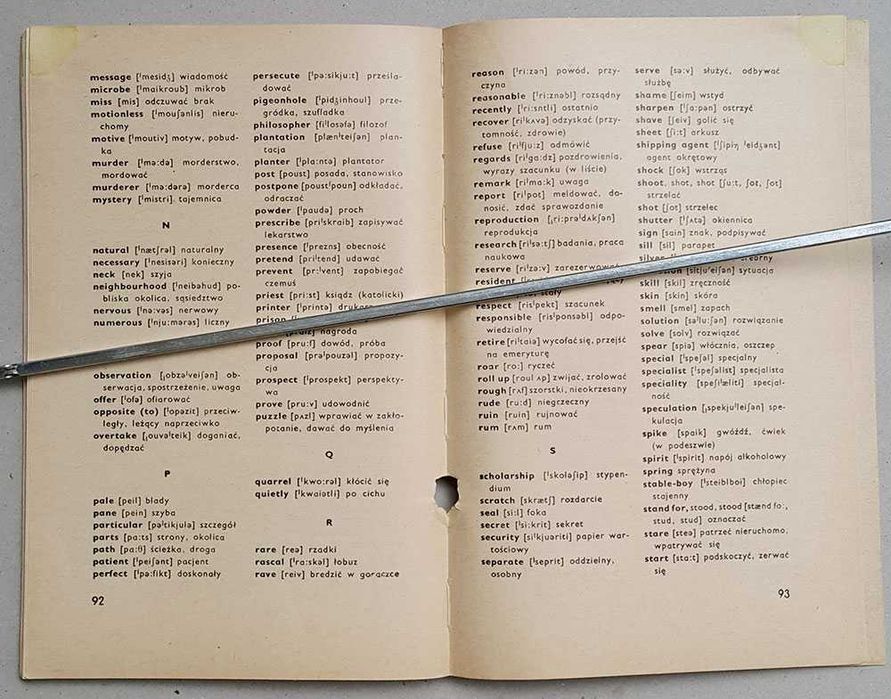 message [ˈmesidʒ] wiadomość
microbe [ˈmaikroub] mikrob
miss [mis] odczuwać brak
motionless [ˈmouʃənlis] nieru-
chomy
motive [ˈmoutiv] motyw, pobud-
ka
murder [ˈmə:də] morderstwo,
mordować
murderer [ˈmə:dərə] morderca
mystery [ˈmistri] tajemnica
N
natural [ˈnætʃrəl] naturalny
necessary [ˈnesisəri] konieczny
neck [nek] szyja
neighbourhood [ˈneibəhud] po-
bliska okolica, sąsiedztwo
nervous [ˈnə:vəs] nerwowy
numerous [ˈnju:mərəs] liczny
observation [ˌobzəˈveiʃən] ob-
serwacja, spostrzeżenie, uwaga
offer [ˈofə] ofiarować
opposite (to) [ˈopəzit] przeciw-
legły, leżący naprzeciwko
overtake [ˌouvəˈteik] doganiać,
dopędzać
P
pale [peil] blady
pane [pein] szyba
particular [pəˈtikjulə] szczegół
parts [pa:ts] strony, okolica
path [pa:θ] ścieżka, droga
patient [ˈpeiʃənt] pacjent
perfect [ˈpə:fikt] doskonały
92
persecute [ˈpə:sikju:t] prześla-
dować
pigeonhole [ˈpidʒinhoul] prze-
gródka, szufladka
philosopher [fiˈlosəfə] filozof
plantation [plænˈteiʃən] plan-
tacja
planter [ˈpla:ntə] plantator
post [poust] posada, stanowisko
postpone [poustˈpoun] odkładać,
odraczać
powder [ˈpaudə] proch
prescribe [priˈskraib] zapisywać
lekarstwo
presence [ˈprezns] obecność
pretend [priˈtend] udawać
prevent [priˈvent] zapobiegać
czemuś
priest [pri:st] ksiądz (katolicki)
printer [ˈprintə] drukarz
prison
nagroda
proof [pru:f] dowód, próba
proposal [prəˈpouzəl] propozy-
cja
prospect [ˈprospekt] perspekty-
wa
prove [pru:v] udowodnić
puzzle [pʌzl] wprawiać w zakło-
potanie, dawać do myślenia
Q
quarrel [ˈkwo:rəl] kłócić się
quietly [ˈkwaiətli] po cichu
R
rare [reə] rzadki
rascal [ˈra:skəl] łobuz
rave [reiv] bredzić w gorączce
reason [ˈri:zən] powód, przy-
czyna
reasonable [ˈri:znəbl] rozsądny
recently [ˈri:sntli] ostatnio
recover [riˈkʌvə] odzyskać (przy-
tomność, zdrowie)
refuse [riˈfju:z] odmówić
regards [riˈga:dz] pozdrowienia,
wyrazy szacunku (w liście)
remark [riˈma:k] uwaga
report [riˈpot] meldować, do-
nosić, zdać sprawozdanie
reproduction [ˌri:prəˈdʌkʃən]
reprodukcja
research [riˈsə:tʃ] badania, praca
naukowa
reserve [riˈzə:v] zarezerwować
resident
stały
respect [risˈpekt] szacunek
responsible [risˈponsəbl] odpo-
wiedzialny
retire [riˈtaiə] wycofać się, przejść
na emeryturę
roar [ro:] ryczeć
roll up [roul ʌp] zwijać, zrolować
rough [rʌf] szorstki, nieokrzesany
rude [ru:d] niegrzeczny
ruin [ruin] rujnować
rum [rʌm] rum
S
scholarship [ˈskoləʃip] stypen-
dium
scratch [skrætʃ] rozdarcie
seal [si:l] foka
secret [ˈsi:krit] sekret
security [siˈkjuəriti] papier war-
tościowy
separate [ˈseprit] oddzielny,
osobny
serve [sə:v] służyć, odbywać
służbę
shame [ʃeim] wstyd
sharpen [ˈʃa:pən] ostrzyć
shave [ʃeiv] golić się
sheet [ʃi:t] arkusz
shipping agent [ˈʃipiŋ ˈeidʒənt]
agent okrętowy
shock [ʃok] wstrząs
shoot, shot, shot [ʃu:t, ʃot, ʃot]
strzelać
shot [ʃot] strzelec
shutter [ˈʃʌtə] okiennica
sign [sain] znak, podpisywać
sill [sil] parapet
[sitjuˈeiʃən] sytuacja
skill [skil] zręczność
skin [skin] skóra
smell [smel] zapach
solution [səˈlu:ʃən] rozwiązanie
solve [solv] rozwiązać
spear [spiə] włócznia, oszczep
special [ˈspeʃəl] specjalny
specialist [ˈspeʃəlist] specjalista
speciality [speʃiˈæliti] specjal-
ność
speculation [ˌspekjuˈleiʃən] spe-
kulacja
spike [spaik] gwóźdź, ćwiek
(w podeszwie)
spirit [ˈspirit] napój alkoholowy
spring sprężyna
stable-boy [ˈsteiblboi] chłopiec
stajenny
stand for, stood, stood [stænd fo:,
stud, stud] oznaczać
stare [steə] patrzeć nieruchomo,
wpatrywać się
start [sta:t] podskoczyć, zerwać
się
93